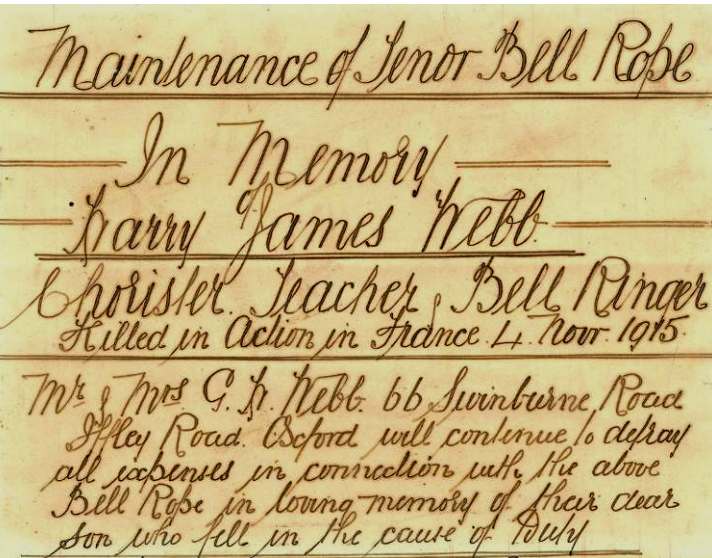 Maintenance of Tenor Bell Rope
In Memory
of
Harry James Webb
Chorister. Teacher & Bell Ringer
Killed in Action in France 4. Novr 1915.
Mr & Mrs G. H. Webb. 66 Swinburne Road
Iffley Road. Oxford will continue to defray
all expenses in connection with the above
Bell Rope in loving memory of their dear
son who fell in the cause of Duty